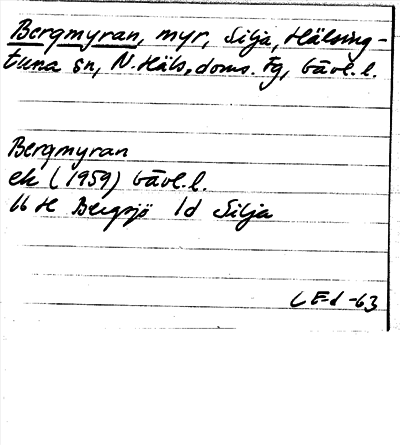 Bergmyran, myr, Silja, Hälsing-
tuna sn, N. Häls. doms. Fg, Gävl. l.
Bergmyran
ek (1959) Gävl. l.
16 H Bergsjö 1d Silja
C E-d -63